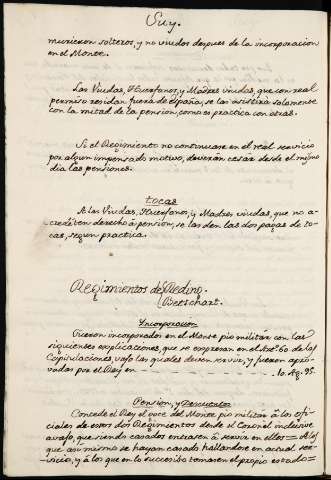 Suy.
murieron solteros, y no viudos despues de la incorporacion
en el Monte.
Las Viudas, Huerfanos, y Madres viudas, que con real
permiso residan fuera de España, se las asistira solamente
con la mitad de la pension, como es practica con otras.
Si el Regimiento no continuase en el real servicio
por algun impensado motivo, deverán cesar desde el mismo
dia las pensiones.
tocas
A las Viudas, Huerfanos, y Madres viudas, que no a-
crediten derecho á pension, se las den las dos pagas de to-
cas, segun practica.
Regimientos de Reding.
Betschart.
Yncorporacion
Fueron incorporados en el Monte pio militár con las
siguientes explicaciones, que se expresan en el Artº 60 de las
Capitulaciones, vajo las quales deven servir, y fueron apro-
vadas por el Rey en 10. Ag. 95.
Pension, y Descuentos
Concede el Rey el goce del Monte pio militar á los ofi-
ciales de estos dos Regimientos desde el Coronel inclusive
avajo, que siendo casados entrasen á servir en ellos = A los
que asi mismo se hayan casado hallandose en actual ser-
vicio, y á los que en lo succesibo tomasen el propio estado =